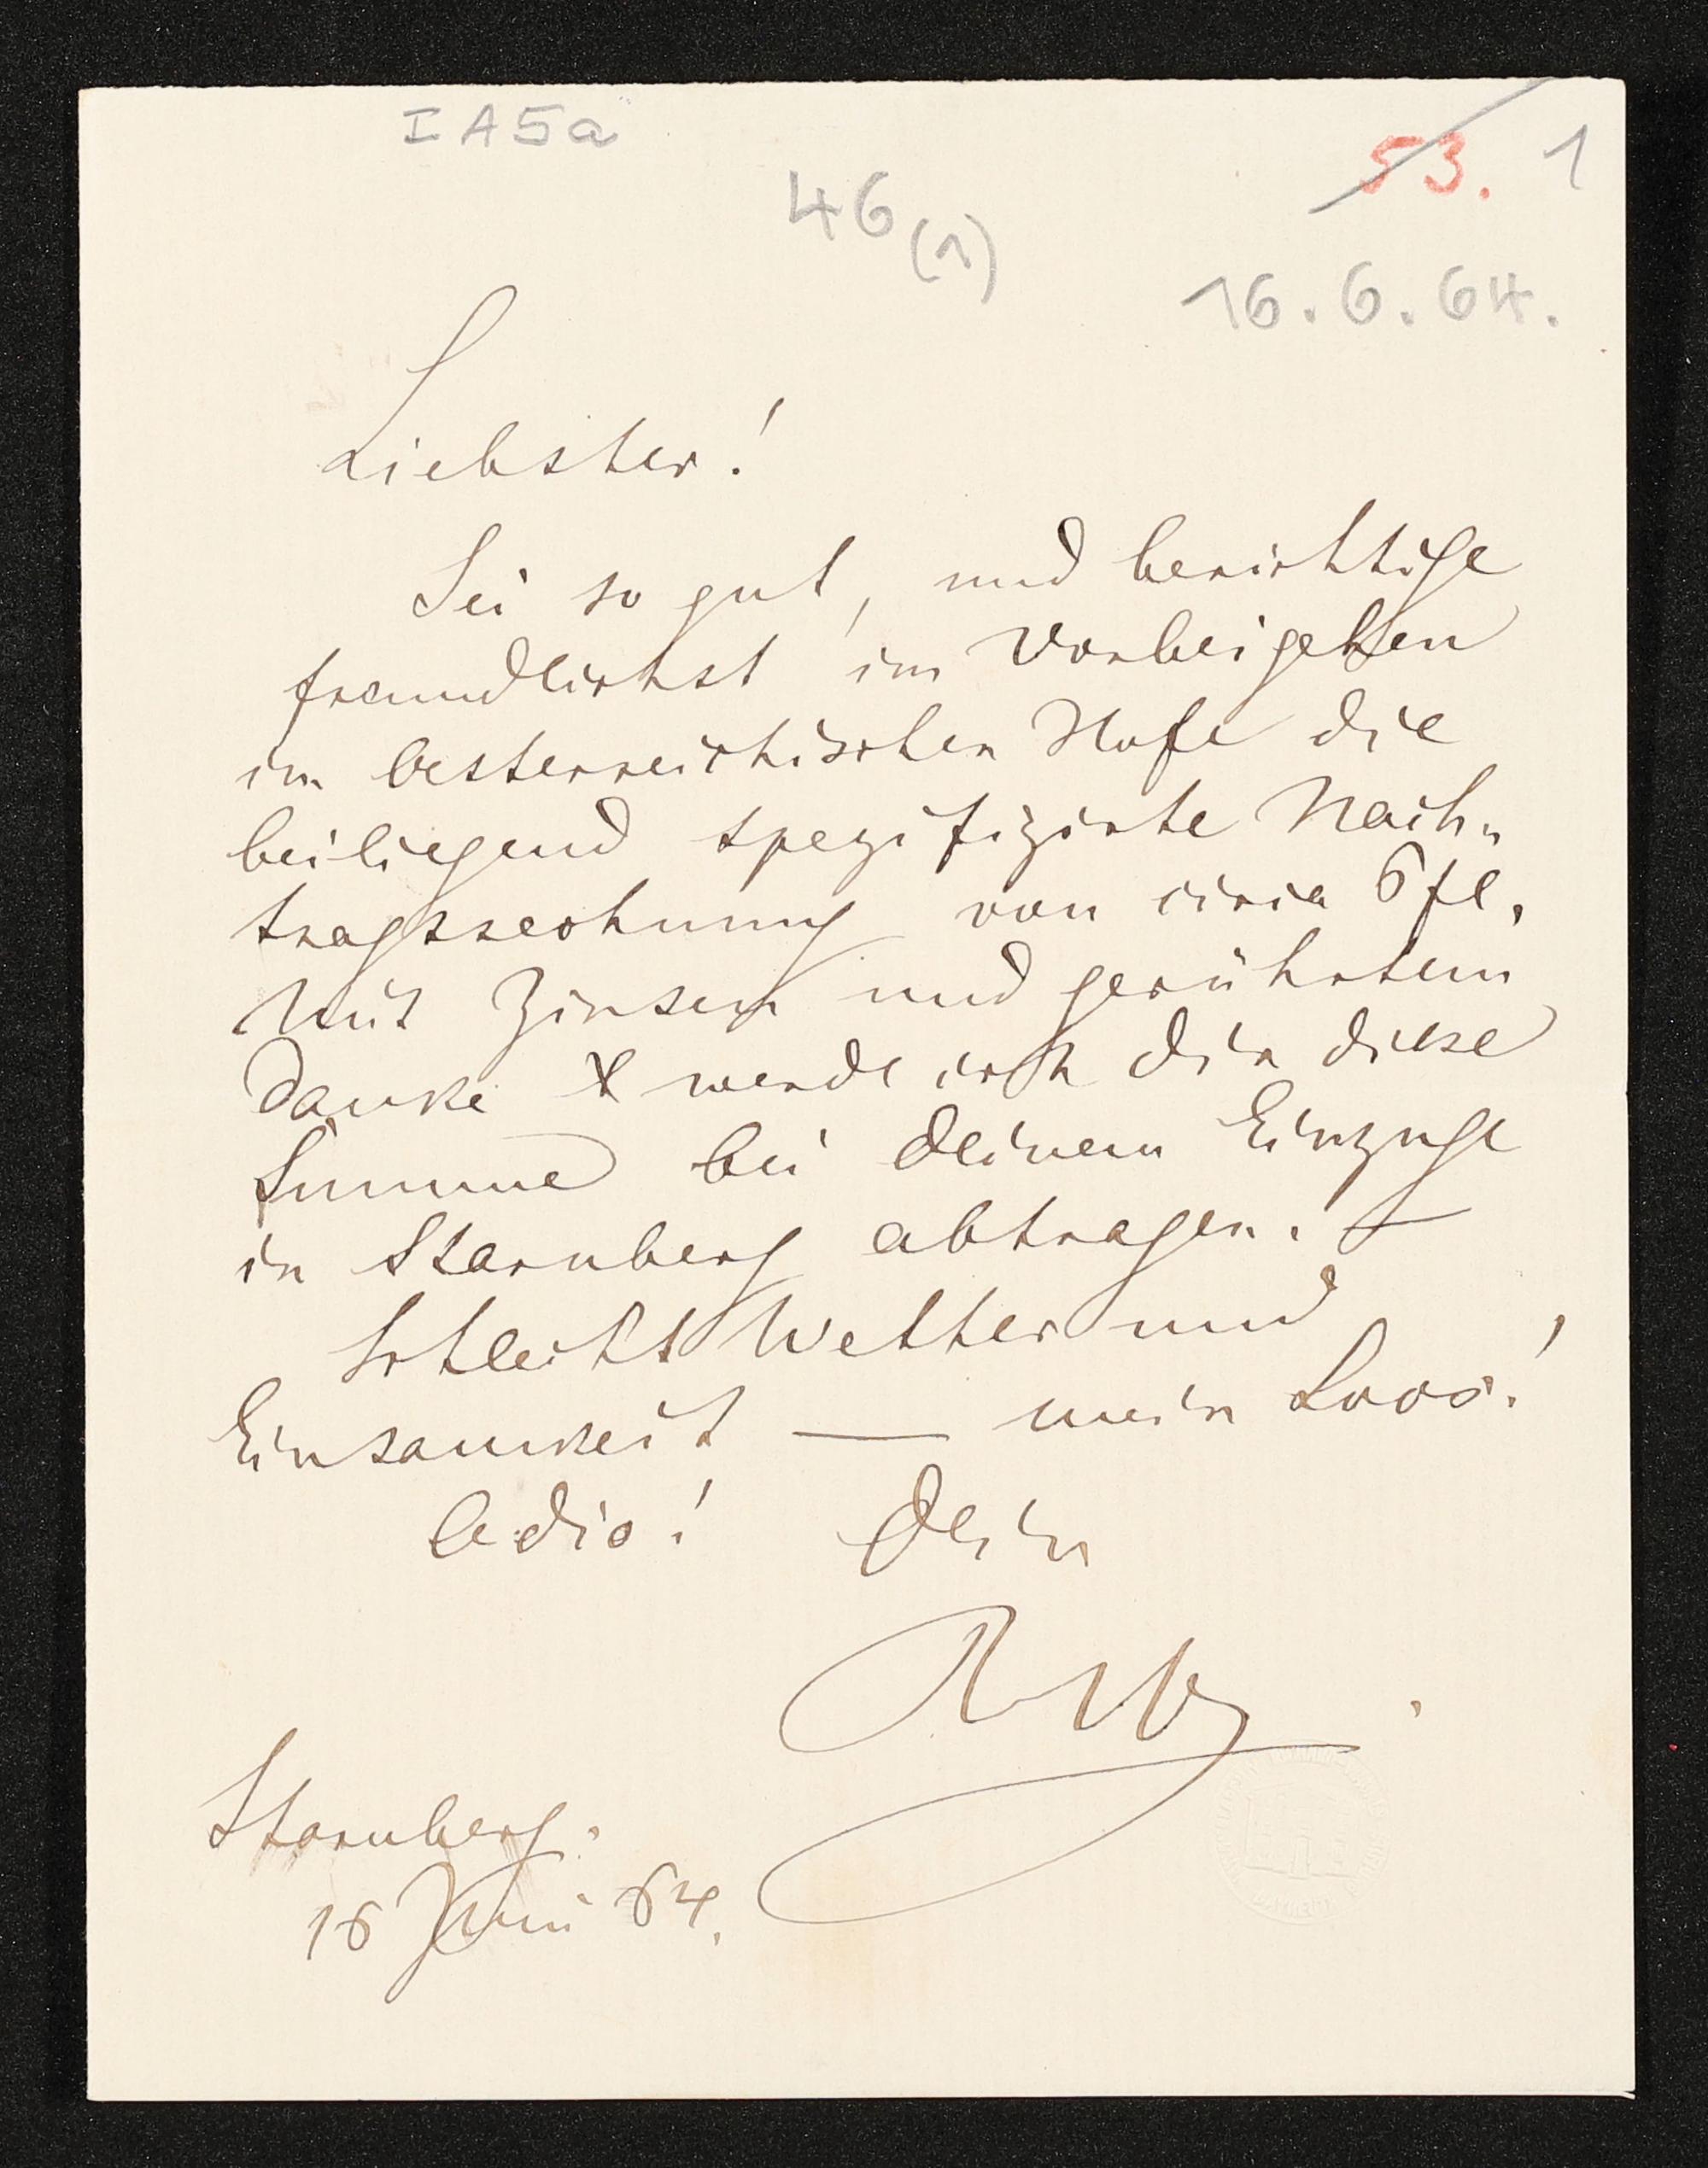 I A 5 a
53. 1
46 (1)
16. 6. 64.
Liebster!
Sei so gut, und berichtige
freundlichst im Vorbeigehen
im Oesterreichischen Hofe die
beiliegend spezifizirte Nach-
tragsrechnung von circa 6 fl.
Mit Zinsen und gerührtem
Danke werde ich dir diese
Summe bei deinem Einzuge
in Starnberg abtragen. —
Schlecht Wetter und
Einsamkeit — mein Loos!
Adio! Dein
RW.
Starnberg.
16 Juni 64.